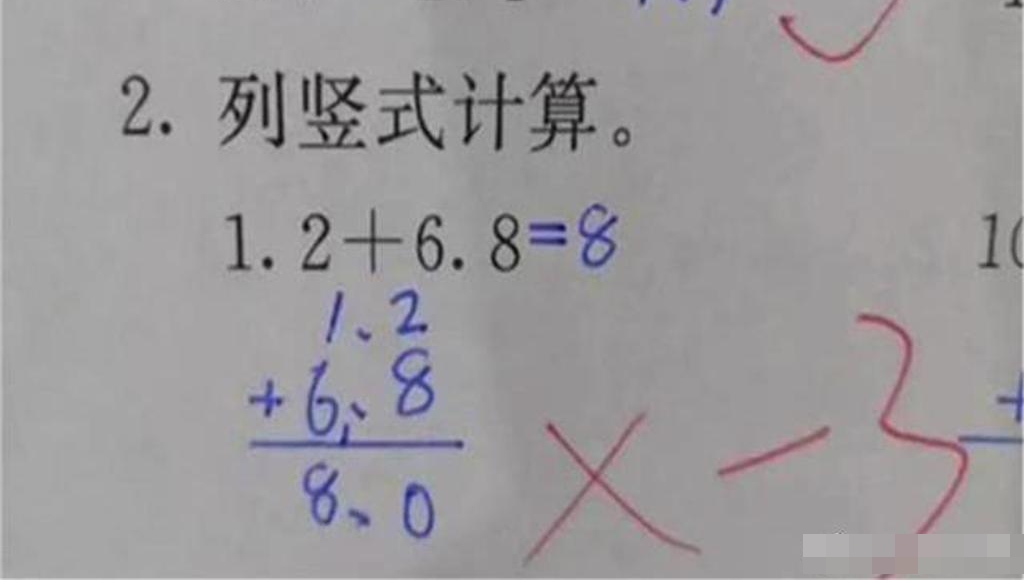 2. 列竖式计算。
1.2+6.8=8
1.2
+6.8
8.0
×-3
10
+